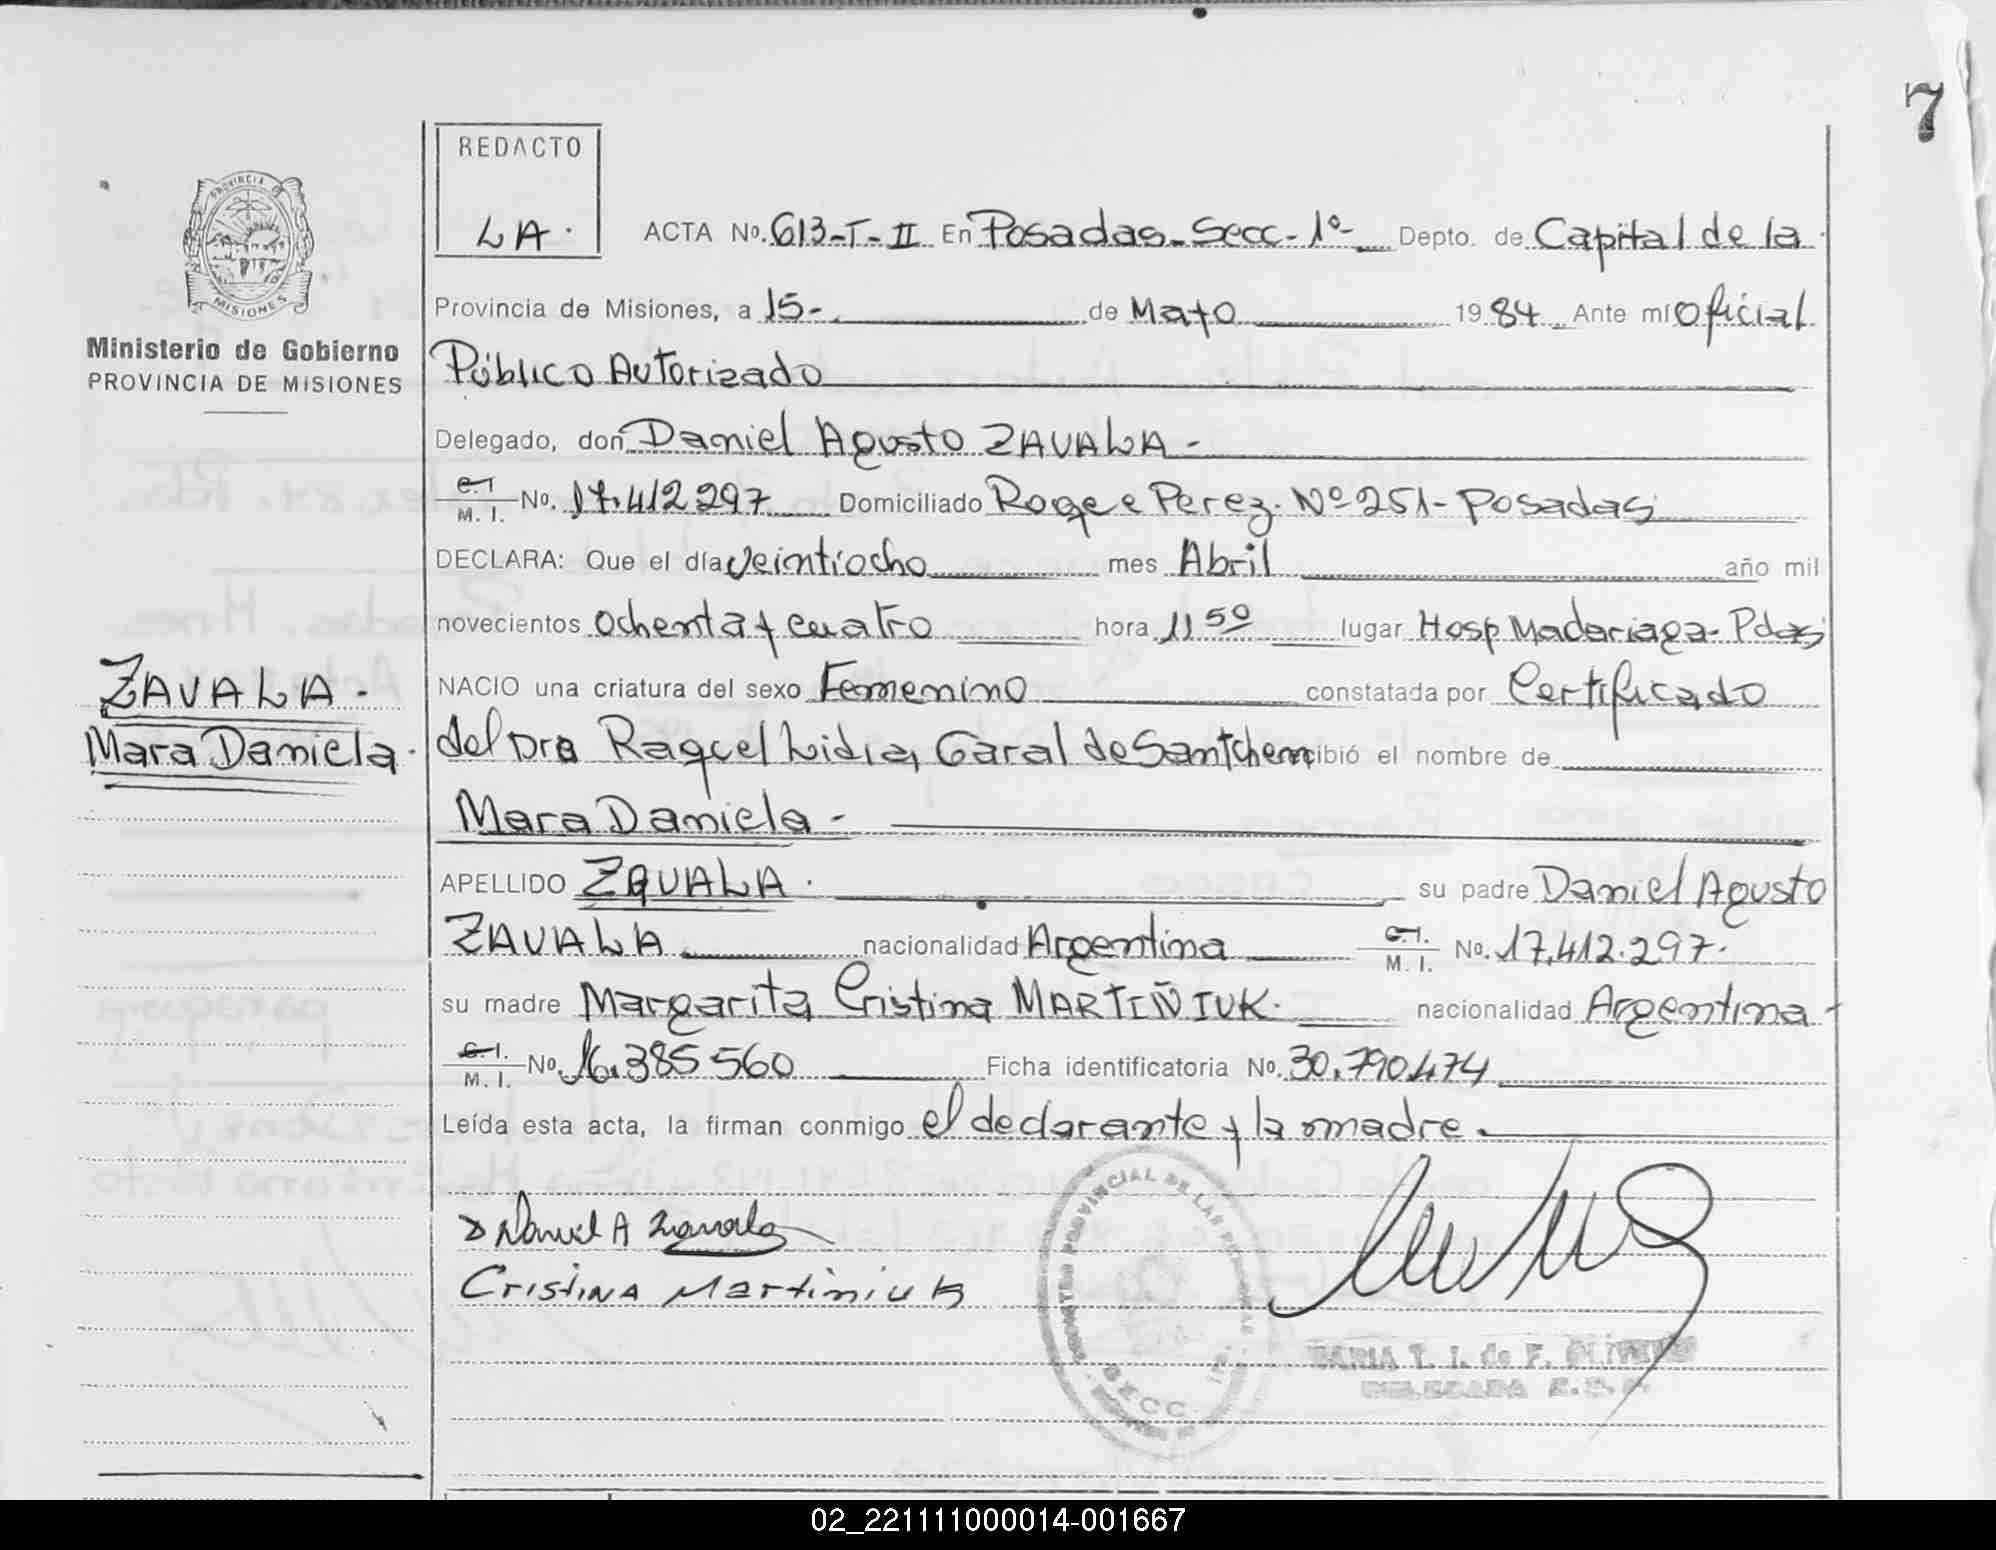 7
REDACTO
LA.
PROVINCIA DE
MISIONES
Ministerio de Gobierno
PROVINCIA DE MISIONES
ZAVALA.
Mara Daniela.
ACTA No. 613-T-II En Posadas-Secc-1º- Depto. de Capital de la
Provincia de Misiones, a 15- de Mayo 19 84 Ante mí Oficial
Público Autorizado
Delegado, don Daniel Agusto ZAVALA-
C.I. M. I. No. 17.412 297 Domiciliado Roque Perez. Nº 251- Posadas
DECLARA: Que el día veintiocho mes Abril año mil
novecientos ochenta y cuatro hora 11 50 lugar Hosp Madariaga- Pdas
NACIO una criatura del sexo Femenino constatada por Certificado
del Dra Raquel Lidia, Garal de recibió el nombre de
Mara Daniela-
APELLIDO ZAVALA. su padre Daniel Agusto
ZAVALA nacionalidad Argentina C.I. M. I. No. 17.412.297.
su madre Margarita Cristina MARTIÑIUK. nacionalidad Argentina-
C.I. M. I. No. 16.385 560 Ficha identificatoria No. 30.790.474
Leída esta acta, la firman conmigo el declarante y la madre.
Daniel A Zavala
Cristina Martiniuk
PROVINCIAL DE LAS PERSONAS
SECC.
MARIA T. I. de F. OLIVEIRA
DELEGADA
02_221111000014-001667